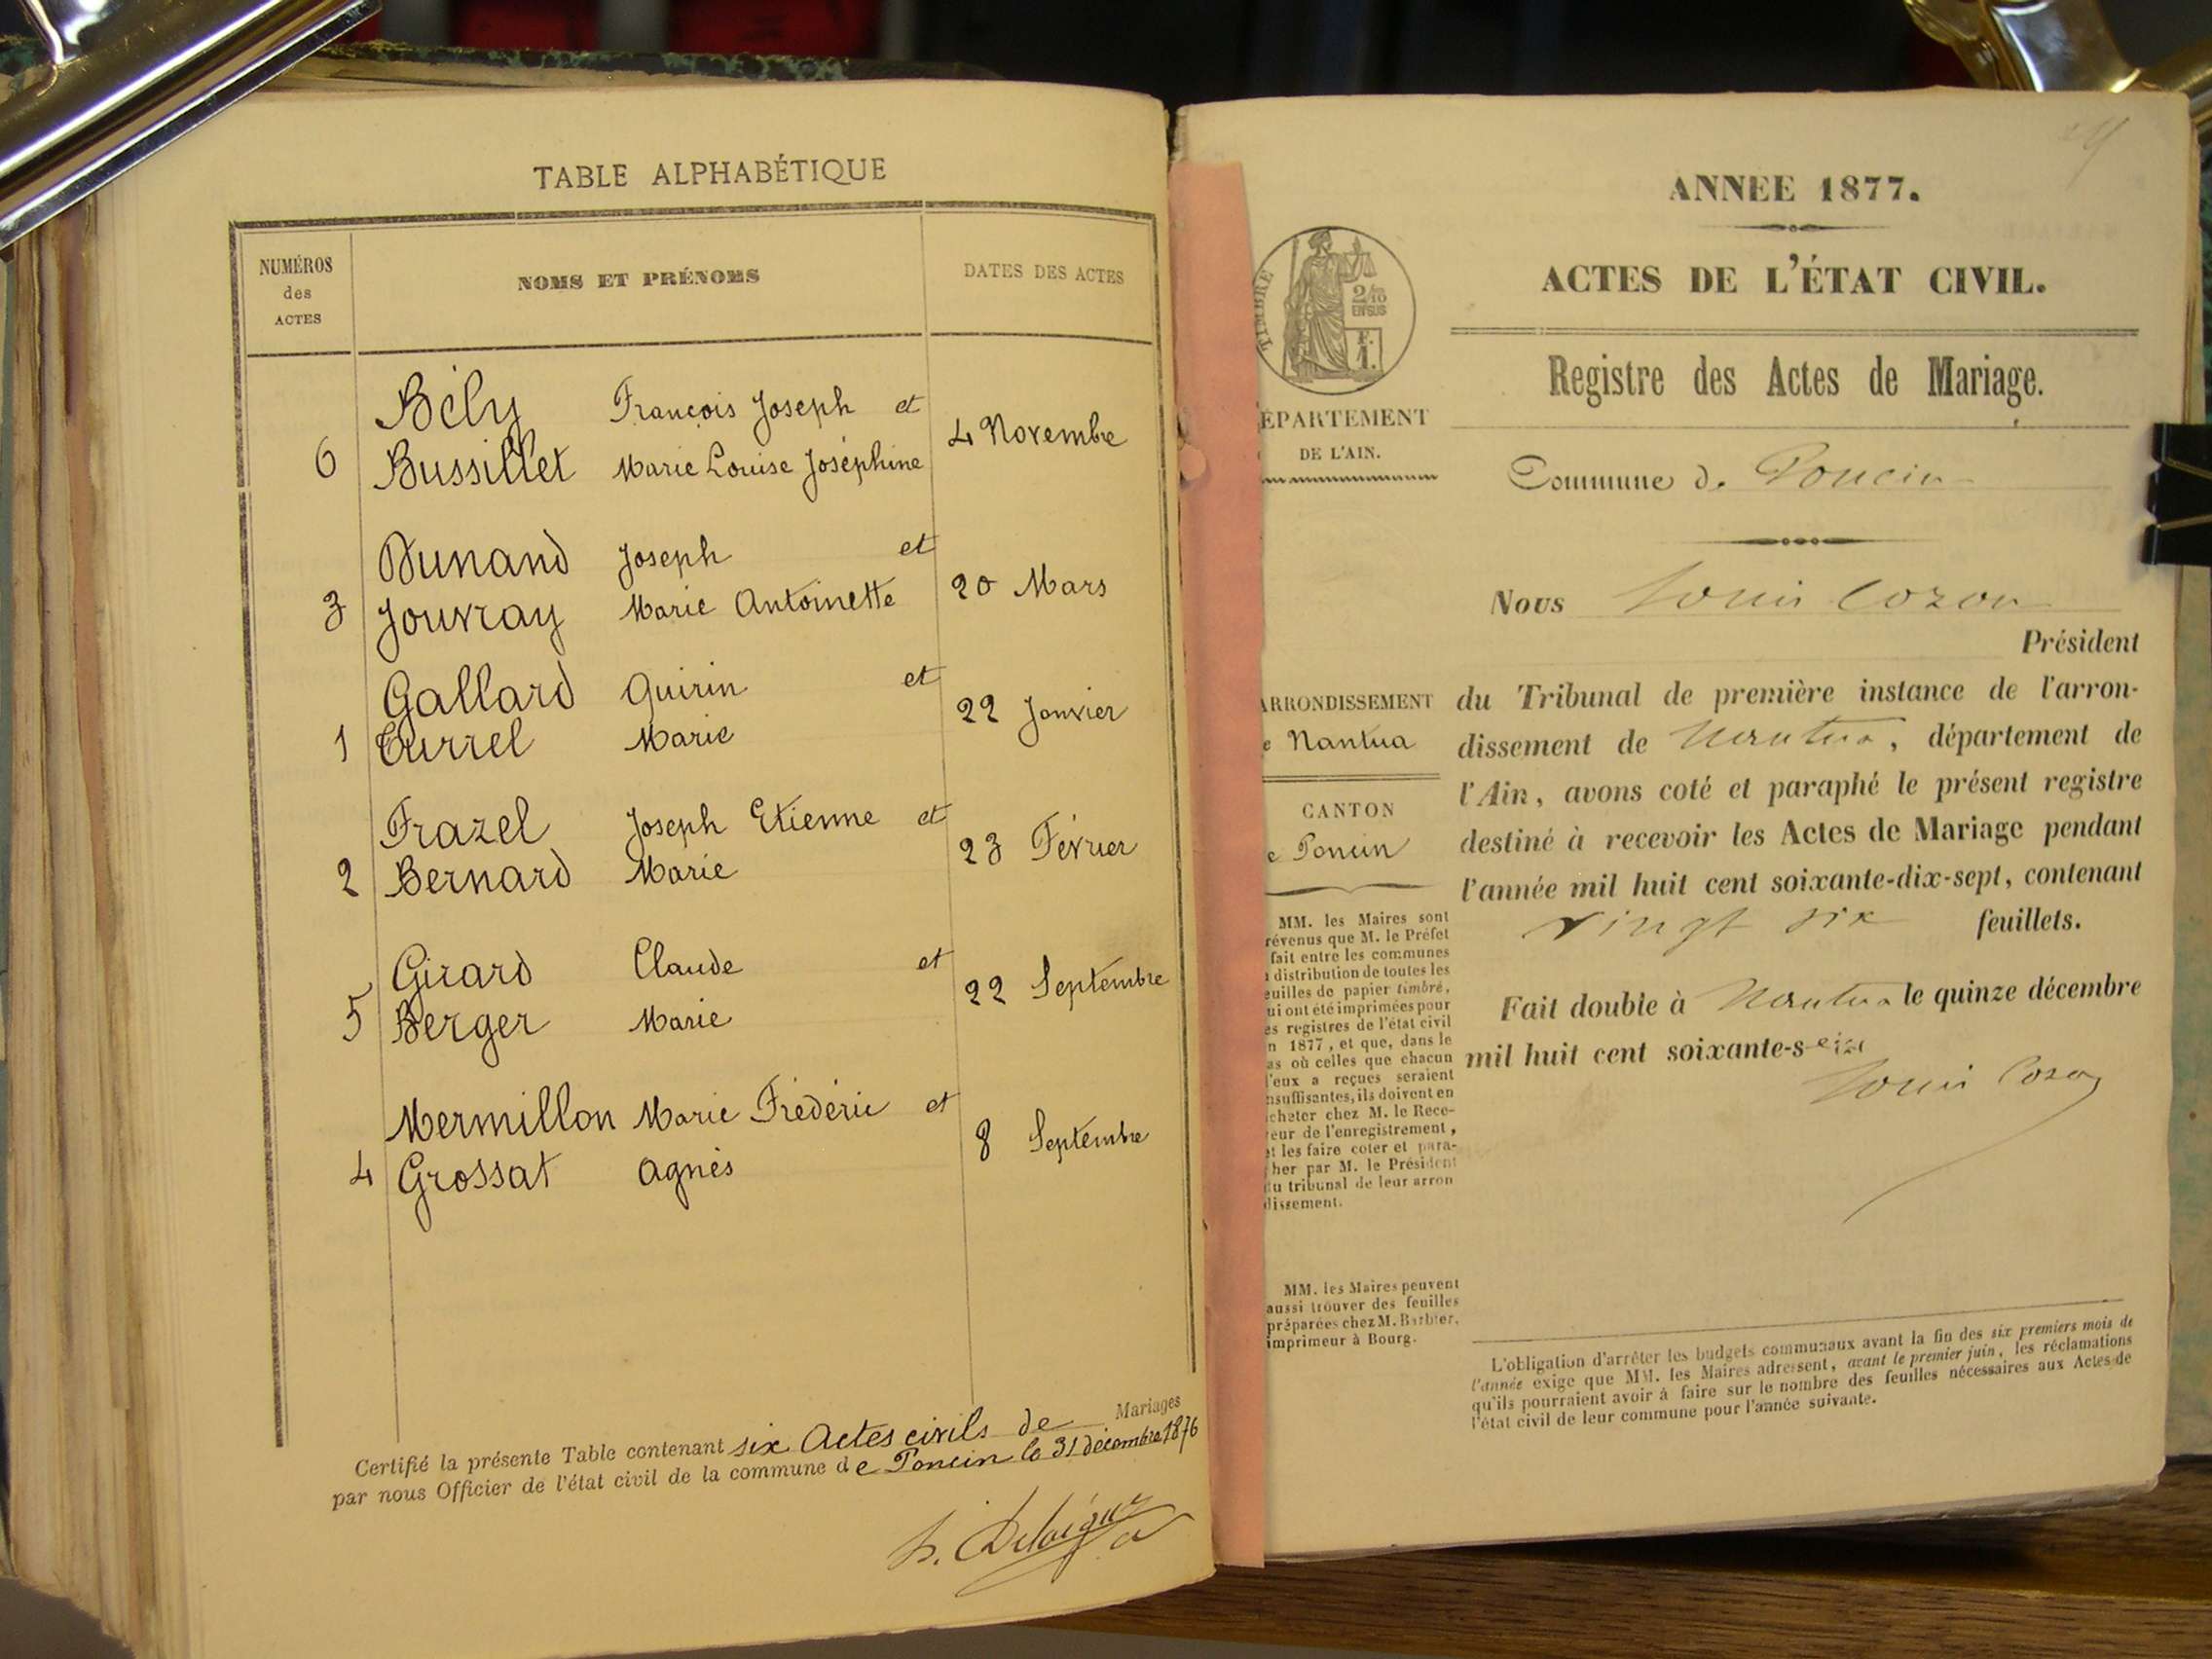 TABLE ALPHABÉTIQUE
NUMÉROS
des
ACTES
NOMS ET PRÉNOMS
DATES DES ACTES
Bély François Joseph et
6 Bussillet Marie Louise Joséphine
4 Novembre
Dunand Joseph et
3 Jouvray Marie Antoinette
20 Mars
Gallard Quirin et
1 Currel Marie
22 Janvier
Frazel Joseph Etienne et
2 Bernard Marie
23 Février
Girard Claude et
5 Berger Marie
22 Septembre
Mermillon Marie Frédéric et
4 Grossat Agnès
8 Septembre
Certifié la présente Table contenant six Actes civils de Mariages
par nous Officier de l'état civil de la commune de Poncin le 31 décembre 1876
ANNEE 1877.
ACTES DE L'ÉTAT CIVIL.
Registre des Actes de Mariage.
TIMBRE
2/10
EN SUS
F.
1.
ÉPARTEMENT
DE L'AIN.
Commune de Poncin
Nous Louis Cozon
Président
du Tribunal de première instance de l'arron-
dissement de Nantua, département de
l'Ain, avons coté et paraphé le présent registre
destiné à recevoir les Actes de Mariage pendant
l'année mil huit cent soixante-dix-sept, contenant
vingt six feuillets.
Fait double à Nantua le quinze décembre
mil huit cent soixante-seize
Louis Cozon
ARRONDISSEMENT
e Nantua
CANTON
e Poncin
MM. les Maires sont
révenus que M. le Préfet
fait entre les communes
a distribution de toutes les
euilles de papier timbré,
ui ont été imprimées pour
es registres de l'état civil
n 1877, et que, dans le
as où celles que chacun
l'eux a reçues seraient
nsuffisantes, ils doivent en
cheter chez M. le Rece-
eur de l'enregistrement,
et les faire coter et para-
her par M. le Président
du tribunal de leur arron
dissement.
MM. les Maires peuvent
aussi trouver des feuilles
préparées chez M. Barbier,
imprimeur à Bourg.
L'obligation d'arrêter les budgets communaux avant la fin des six premiers mois de
l'année exige que MM. les Maires adressent, avant le premier juin, les réclamations
qu'ils pourraient avoir à faire sur le nombre des feuilles nécessaires aux Actes de
l'état civil de leur commune pour l'année suivante.